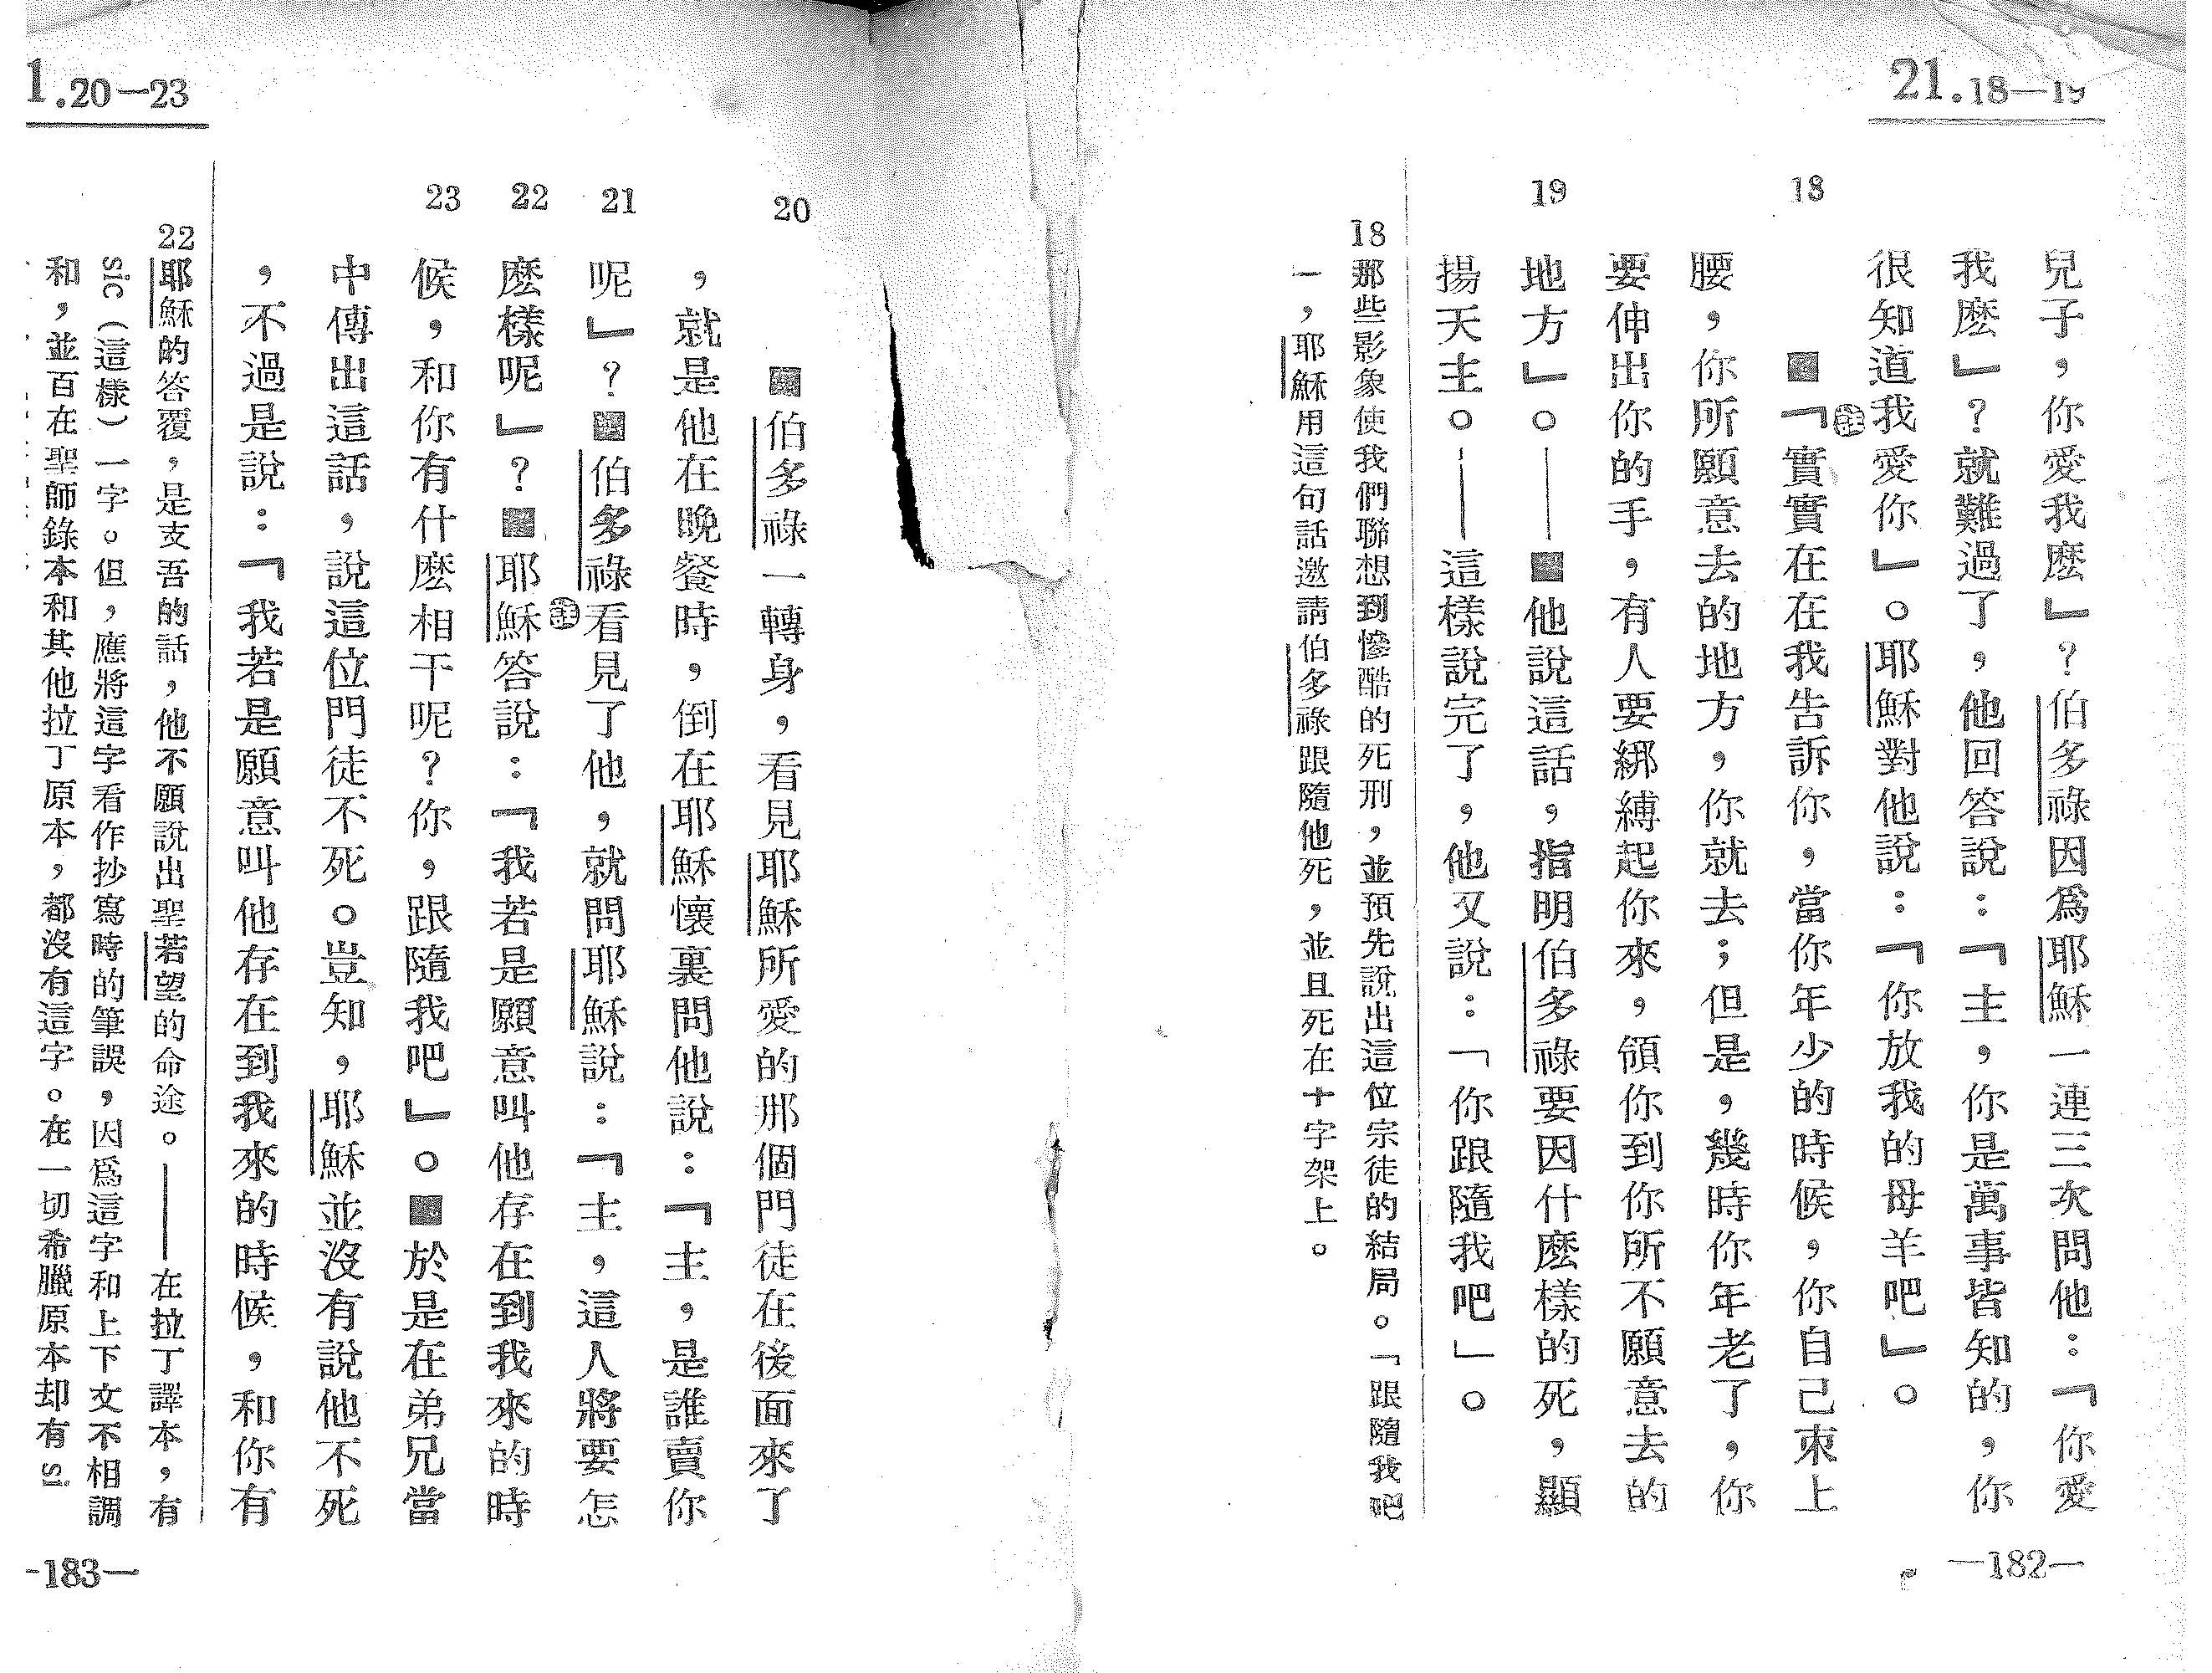 21.18—19
兒子，你愛我麽」？伯多祿因爲耶穌一連三次問他：「你愛
我麽」？就難過了，他回答說：「主，你是萬事皆知的，你
很知道我愛你」。耶穌對他說：「你放我的母羊吧」。
18
■「實實在在我告訴你，當你年少的時候，你自己束上
註
腰，你所願意去的地方，你就去；但是，幾時你年老了，你
要伸出你的手，有人要綁縛起你來，領你到你所不願意去的
19
地方」。——■他說這話，指明伯多祿要因什麽樣的死，顯
揚天主。——這樣說完了，他又說：「你跟隨我吧」。
18那些影象使我們聯想到慘酷的死刑，並預先說出這位宗徒的結局。「跟隨我吧
一，耶穌用這句話邀請伯多祿跟隨他死，並且死在十字架上。
—182—
1.20—23
20
■伯多祿一轉身，看見耶穌所愛的那個門徒在後面來了
，就是他在晚餐時，倒在耶穌懷裏問他說：「主，是誰賣你
21
呢」？■伯多祿看見了他，就問耶穌說：「主，這人將要怎
22
麽樣呢」？■耶穌答說：「我若是願意叫他存在到我來的時
註
23
候，和你有什麽相干呢？你，跟隨我吧」。■於是在弟兄當
中傳出這話，說這位門徒不死。豈知，耶穌並沒有說他不死
，不過是說：「我若是願意叫他存在到我來的時候，和你有
22耶穌的答覆，是支吾的話，他不願說出聖若望的命途。——在拉丁譯本，有
sic（這樣）一字。但，應將這字看作抄寫時的筆誤，因爲這字和上下文不相調
和，並百在聖師錄本和其他拉丁原本，都沒有這字。在一切希臘原本却有si
-183—